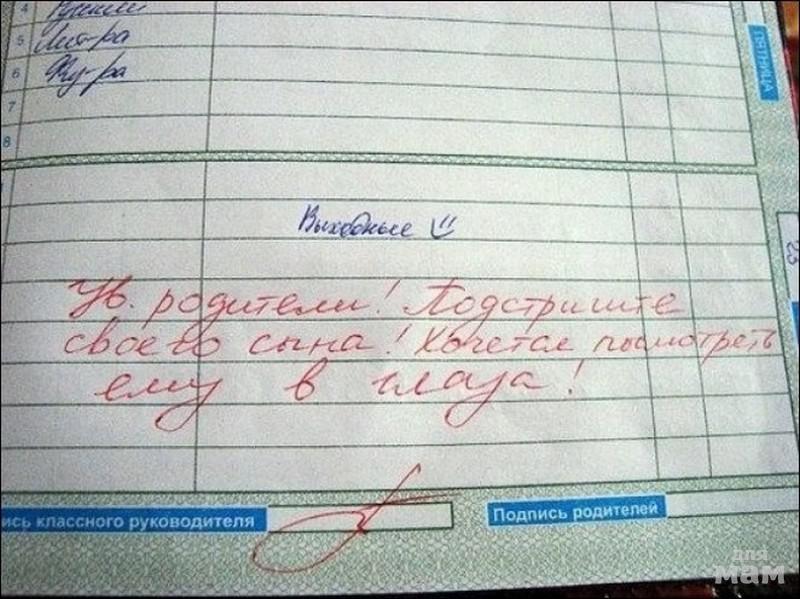 4 Русский
5 Лит-ра
6 Физ-ра
7
8
ПЯТНИЦА
Выходные
23
Ув. родители! Подстригите
своего сына! Хочется посмотреть
ему в глаза!
ись классного руководителя
Подпись родителей
для
мам